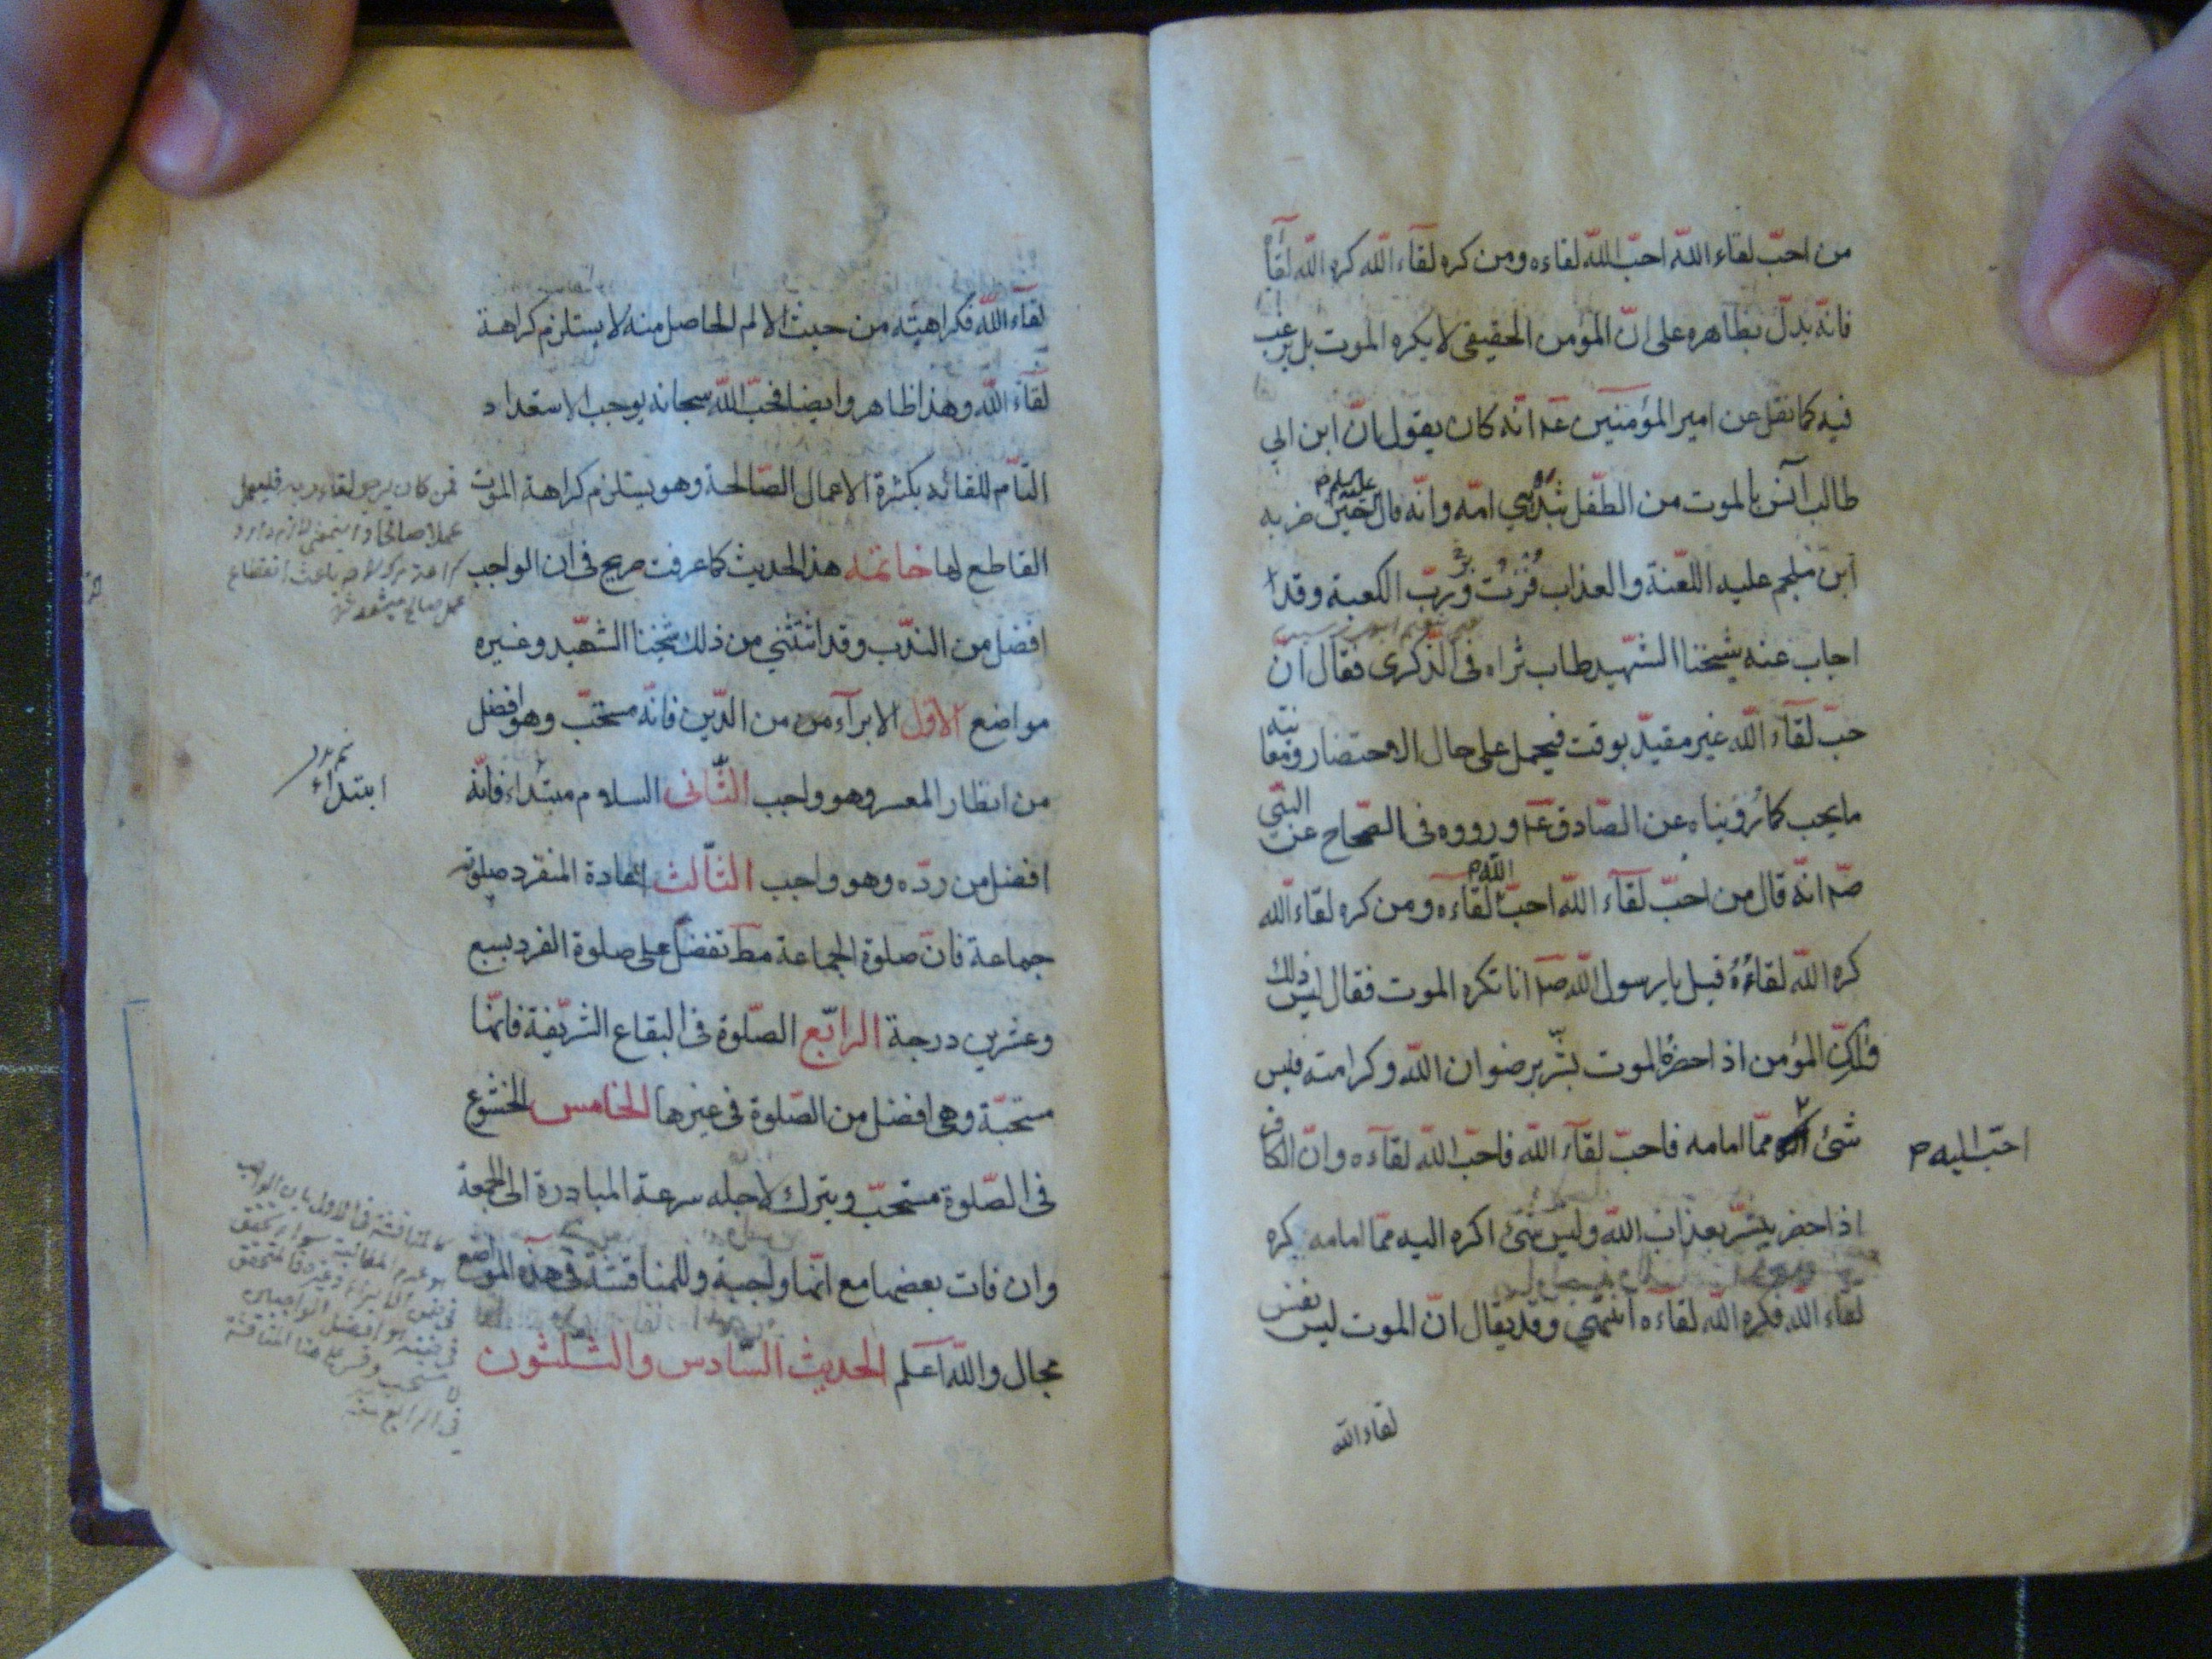 من احبّ لقاء اللّه احبّ اللّه لقاءه ومن كره لقآء اللّه كره اللّه لقآءه
فانّه يدلّ بظاهره على انّ المؤمن الحقيقى لا يكره الموت بل يرغب
فيه كما نقل عن امير المؤمنين عم انّه كان يقول انّ ابن ابى
طالب آنس بالموت من الطّفل بثدى امّه وانّه قال عليه السلم حين ضربه
ابن ملجم عليه اللّعنة والعذاب فزت وربّ الكعبة وقد
اجاب عنه شيخنا الشّهيد طاب ثراه فى الذّكرى فقال انّ
حبّ لقآء اللّه غير مقيّد بوقت فيحمل على حال الاحتضار ومعاينة
ما يحب كما رويناه عن الصّادق عم ورووه فى الصّحاح عن النبّى
صم انّه قال من احبّ لقآء اللّه احبّ اللّه لقآءه ومن كره لقاء اللّه
كره اللّه لقاءه قيل يا رسول اللّه صم انا نكره الموت فقال ليس ذلك
ولكنّ المؤمن اذا حضره الموت بشّر برضوان اللّه وكرامته فليس
شئ ممّا امامه فاحبّ لقآء اللّه فاحبّ اللّه لقآءه وانّ الكافر
احبّ اليه م
اذا حضر يبشّر بعذاب اللّه وليس شئ اكره اليه ممّا امامه كره
لقآء اللّه فكره اللّه لقاءه انتهى وقد يقال انّ الموت ليس نفس
لقاء اللّه
لقآء اللّه فكراهيته من حيث الالم الحاصل منه لا يستلزم كراهة
لقآء اللّه وهذا ظاهر وايضا فحبّ اللّه سبحانه يوجب الاستعداد
التامّ للقائه بكثرة الاعمال الصّالحة وهو يستلزم كراهة الموت
فمن كان يرجو لقاء ربه فليعمل
عملا صالحا
القاطع لها خاتمه هذا الحديث كما عرفت صريح فى ان الواجب
افضل من الندب وقد استثنى من ذلك شيخنا الشهيد وغيره
مواضع الاوّل الابرآء من الدّين فانّه مستحبّ وهو افضل
من انظار المعسر وهو واجب الثّانى السلام مبتداء فانّه
ابتداء
افضل من ردّه وهو واجب الثّالث اعادة المنفرد صلوته
جماعة فانّ صلوة الجماعة مط تفضل على صلوة الفرد بسبع
وعشرين درجة الرابع الصّلوة فى البقاع الشّريفة فانّها
مستحبّة وهى افضل من الصّلوة فى غيرها الخامس الخشوع
فى الصّلوة مستحبّ ويترك لاجله سرعة المبادرة الى الجمعة
وان فات بعضها مع انّها واجبة وللمناقشة فى هذه المواضع
مجال واللّه اعلم الحديث السّادس والثلثون